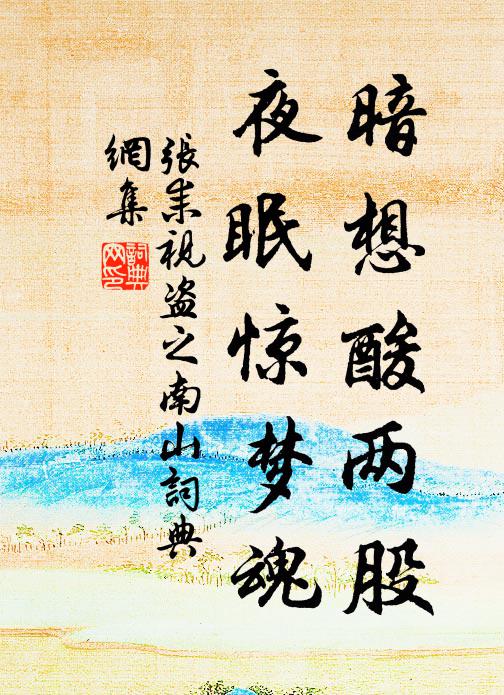 暗想酸两股
夜眠惊梦魂
張耒視盗之南山詞典
網集
詞典
网印